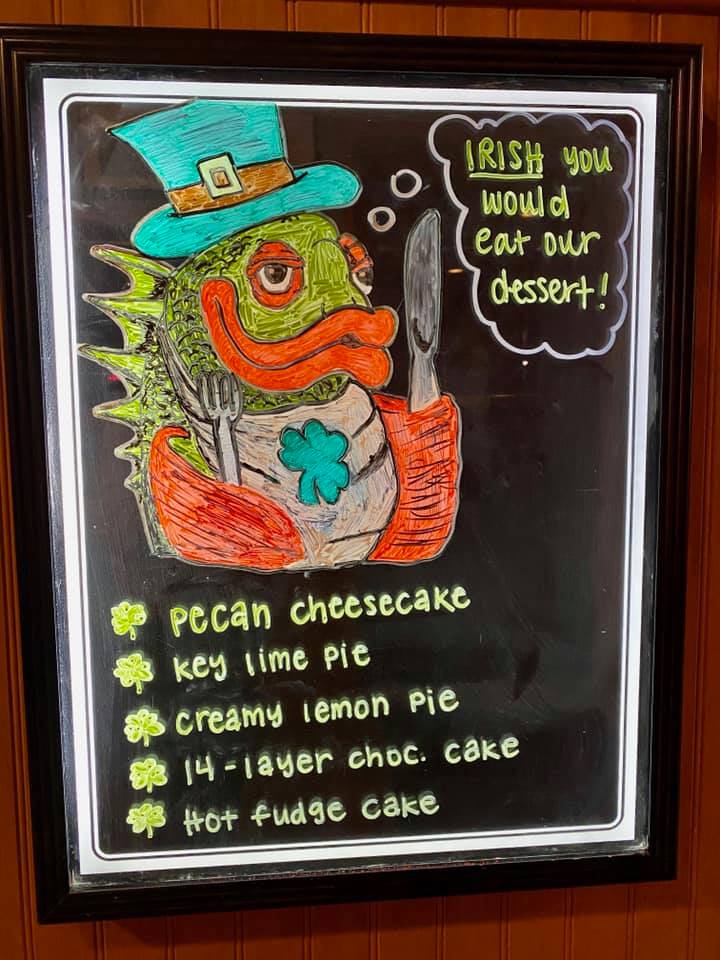 IRISH you
would
eat our
dessert!
pecan cheesecake
key lime pie
creamy lemon pie
14-layer choc. cake
Hot fudge cake